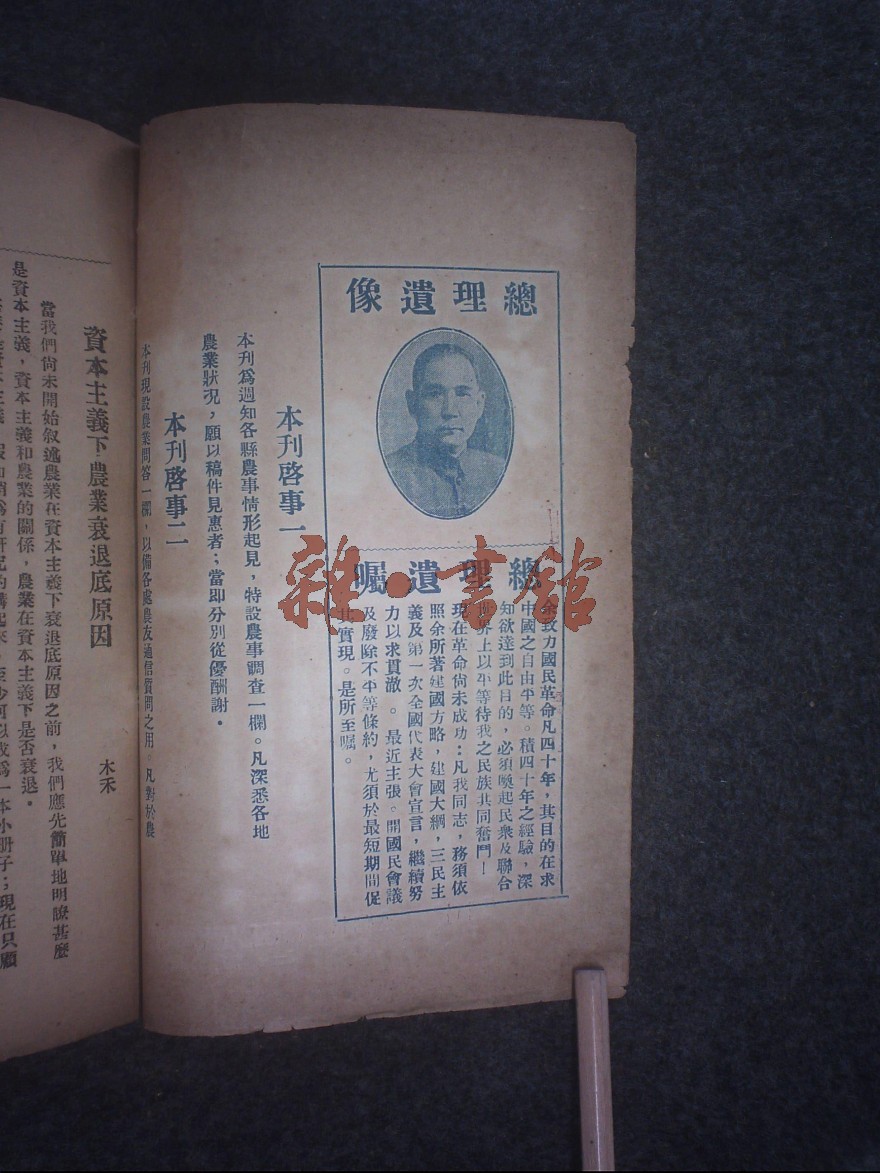 總理遺像
總理遺囑
余致力國民革命凡四十年，其目的在求
中國之自由平等。積四十年之經驗，深
知欲達到此目的，必須喚起民衆及聯合
世界上以平等待我之民族共同奮鬥—
現在革命尚未成功：凡我同志，務須依
照余所著建國方略，建國大綱，三民主
義及第一次全國代表大會宣言，繼續努
力以求貫澈。最近主張。開國民會議
及廢除不平等條約，尤須於最短期間促
其實現。是所至囑。
本刊啓事一
本刊爲週知各縣農事情形起見，特設農事調查一欄。凡深悉各地
農業狀況，願以稿件見惠者；當即分別從優酬謝。
本刊啓事二
本刊現設農業問答一欄，以備各處農友通信質問之用。凡對於農
資本主義下農業衰退底原因
木禾
當我們尚未開始叙述農業在資本主義下衰退底原因之前，我們應先簡單地明瞭甚麽
是資本主義，資本主義和農業的關係，農業在資本主義下是否衰退。
本小册子；現在只願
雜·書館